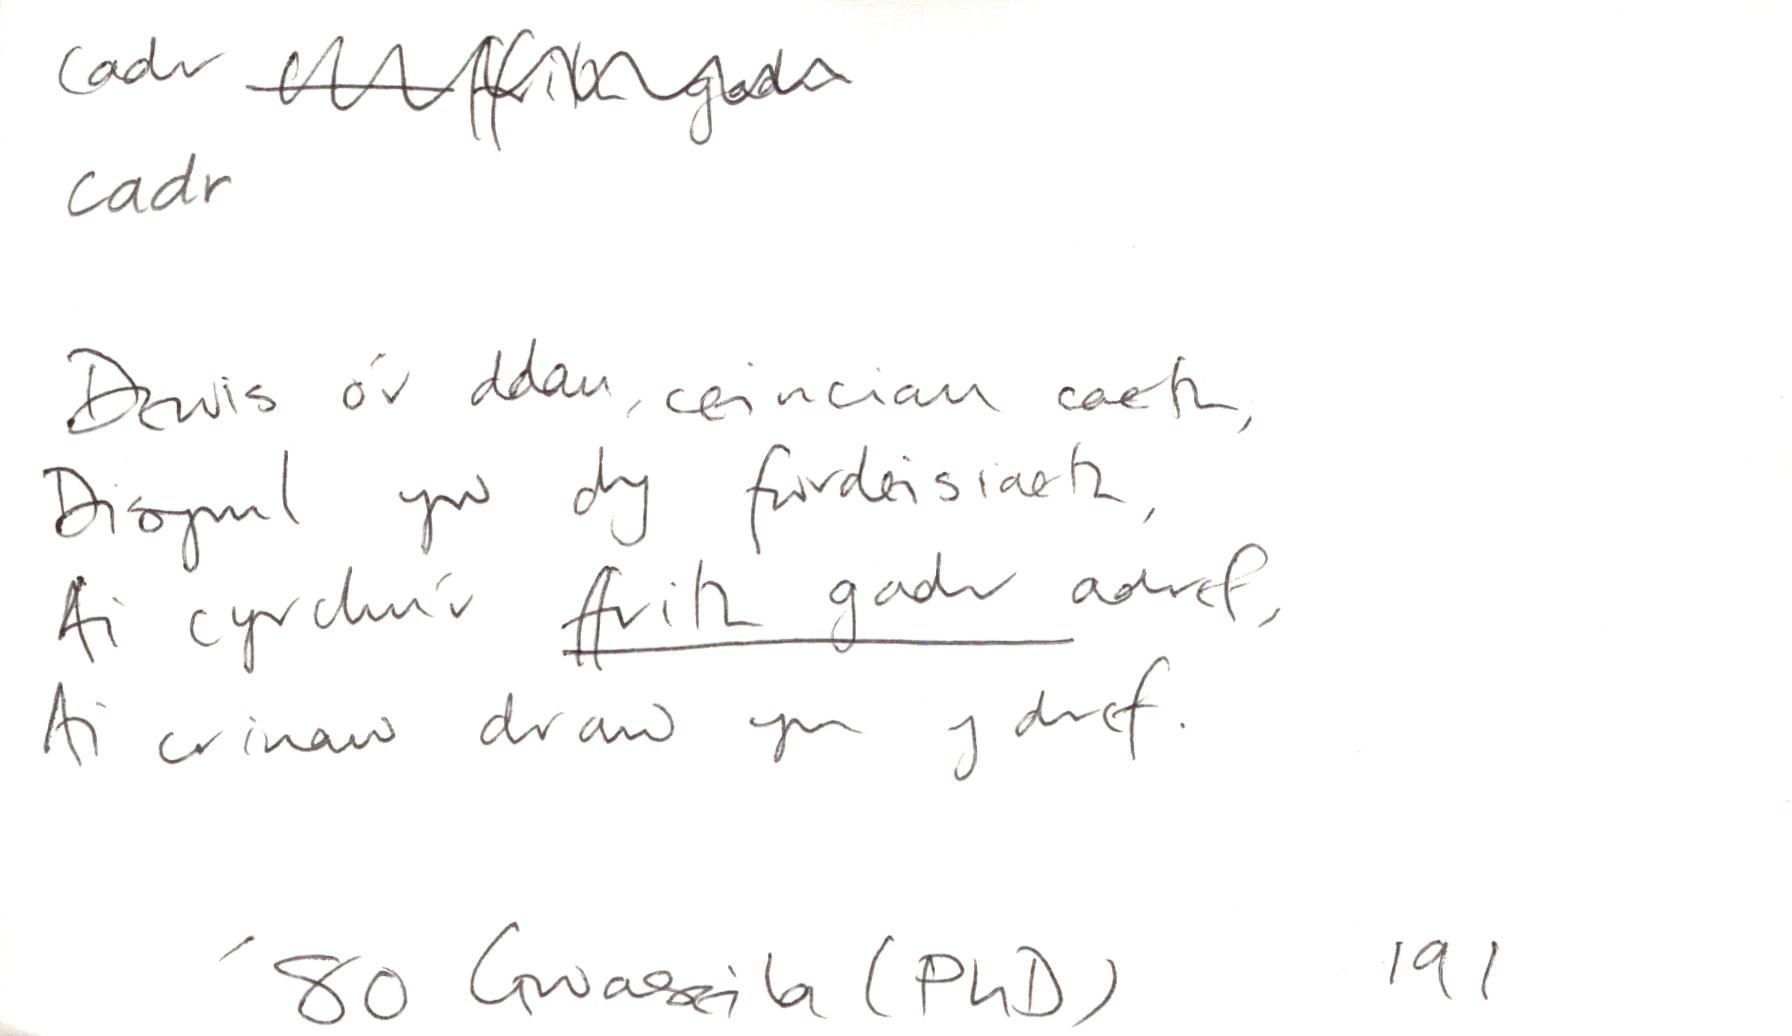 cadr ffrith gadr
cadr
Dewis o'r ddau, ceinciau caeth,
Disgwyl yw dy fwrdeisiaeth,
Ai cyrchu'r ffrith gadr adref,
Ai crinaw draw yn y dref.
'80 (PhD) 191